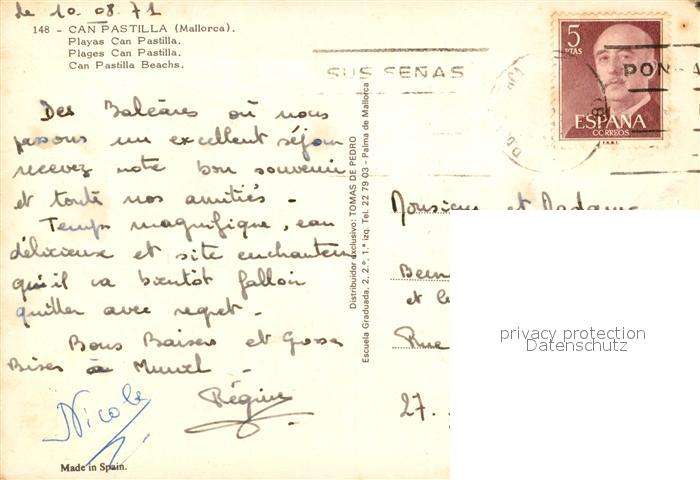 Le 10.08.71
148 - CAN PASTILLA (Mallorca).
Playas Can Pastilla.
Plages Can Pastilla.
Can Pastilla Beachs.
Des Baléares où nous
passons un excellent séjour
recevez notre bon souvenir
et toute nos amitiés -
Temps magnifique, eau
délicieuse et site enchanteur
qu'il va bientôt falloir
quitter avec regret -
Bons Baisers et Grosses
Bises à
Régine
Nicole
Made in Spain.
Distribuidor exclusivo: TOMAS DE PEDRO
Escuela Graduada, 2, 2.º, 1.ª izq. Tel. 22 79 03 - Palma de Mallorca
SUS SEÑAS
PON
5
PTAS
ESPAÑA
CORREOS
Monsieur et Madame
et
Rue
27.
privacy protection
Datenschutz